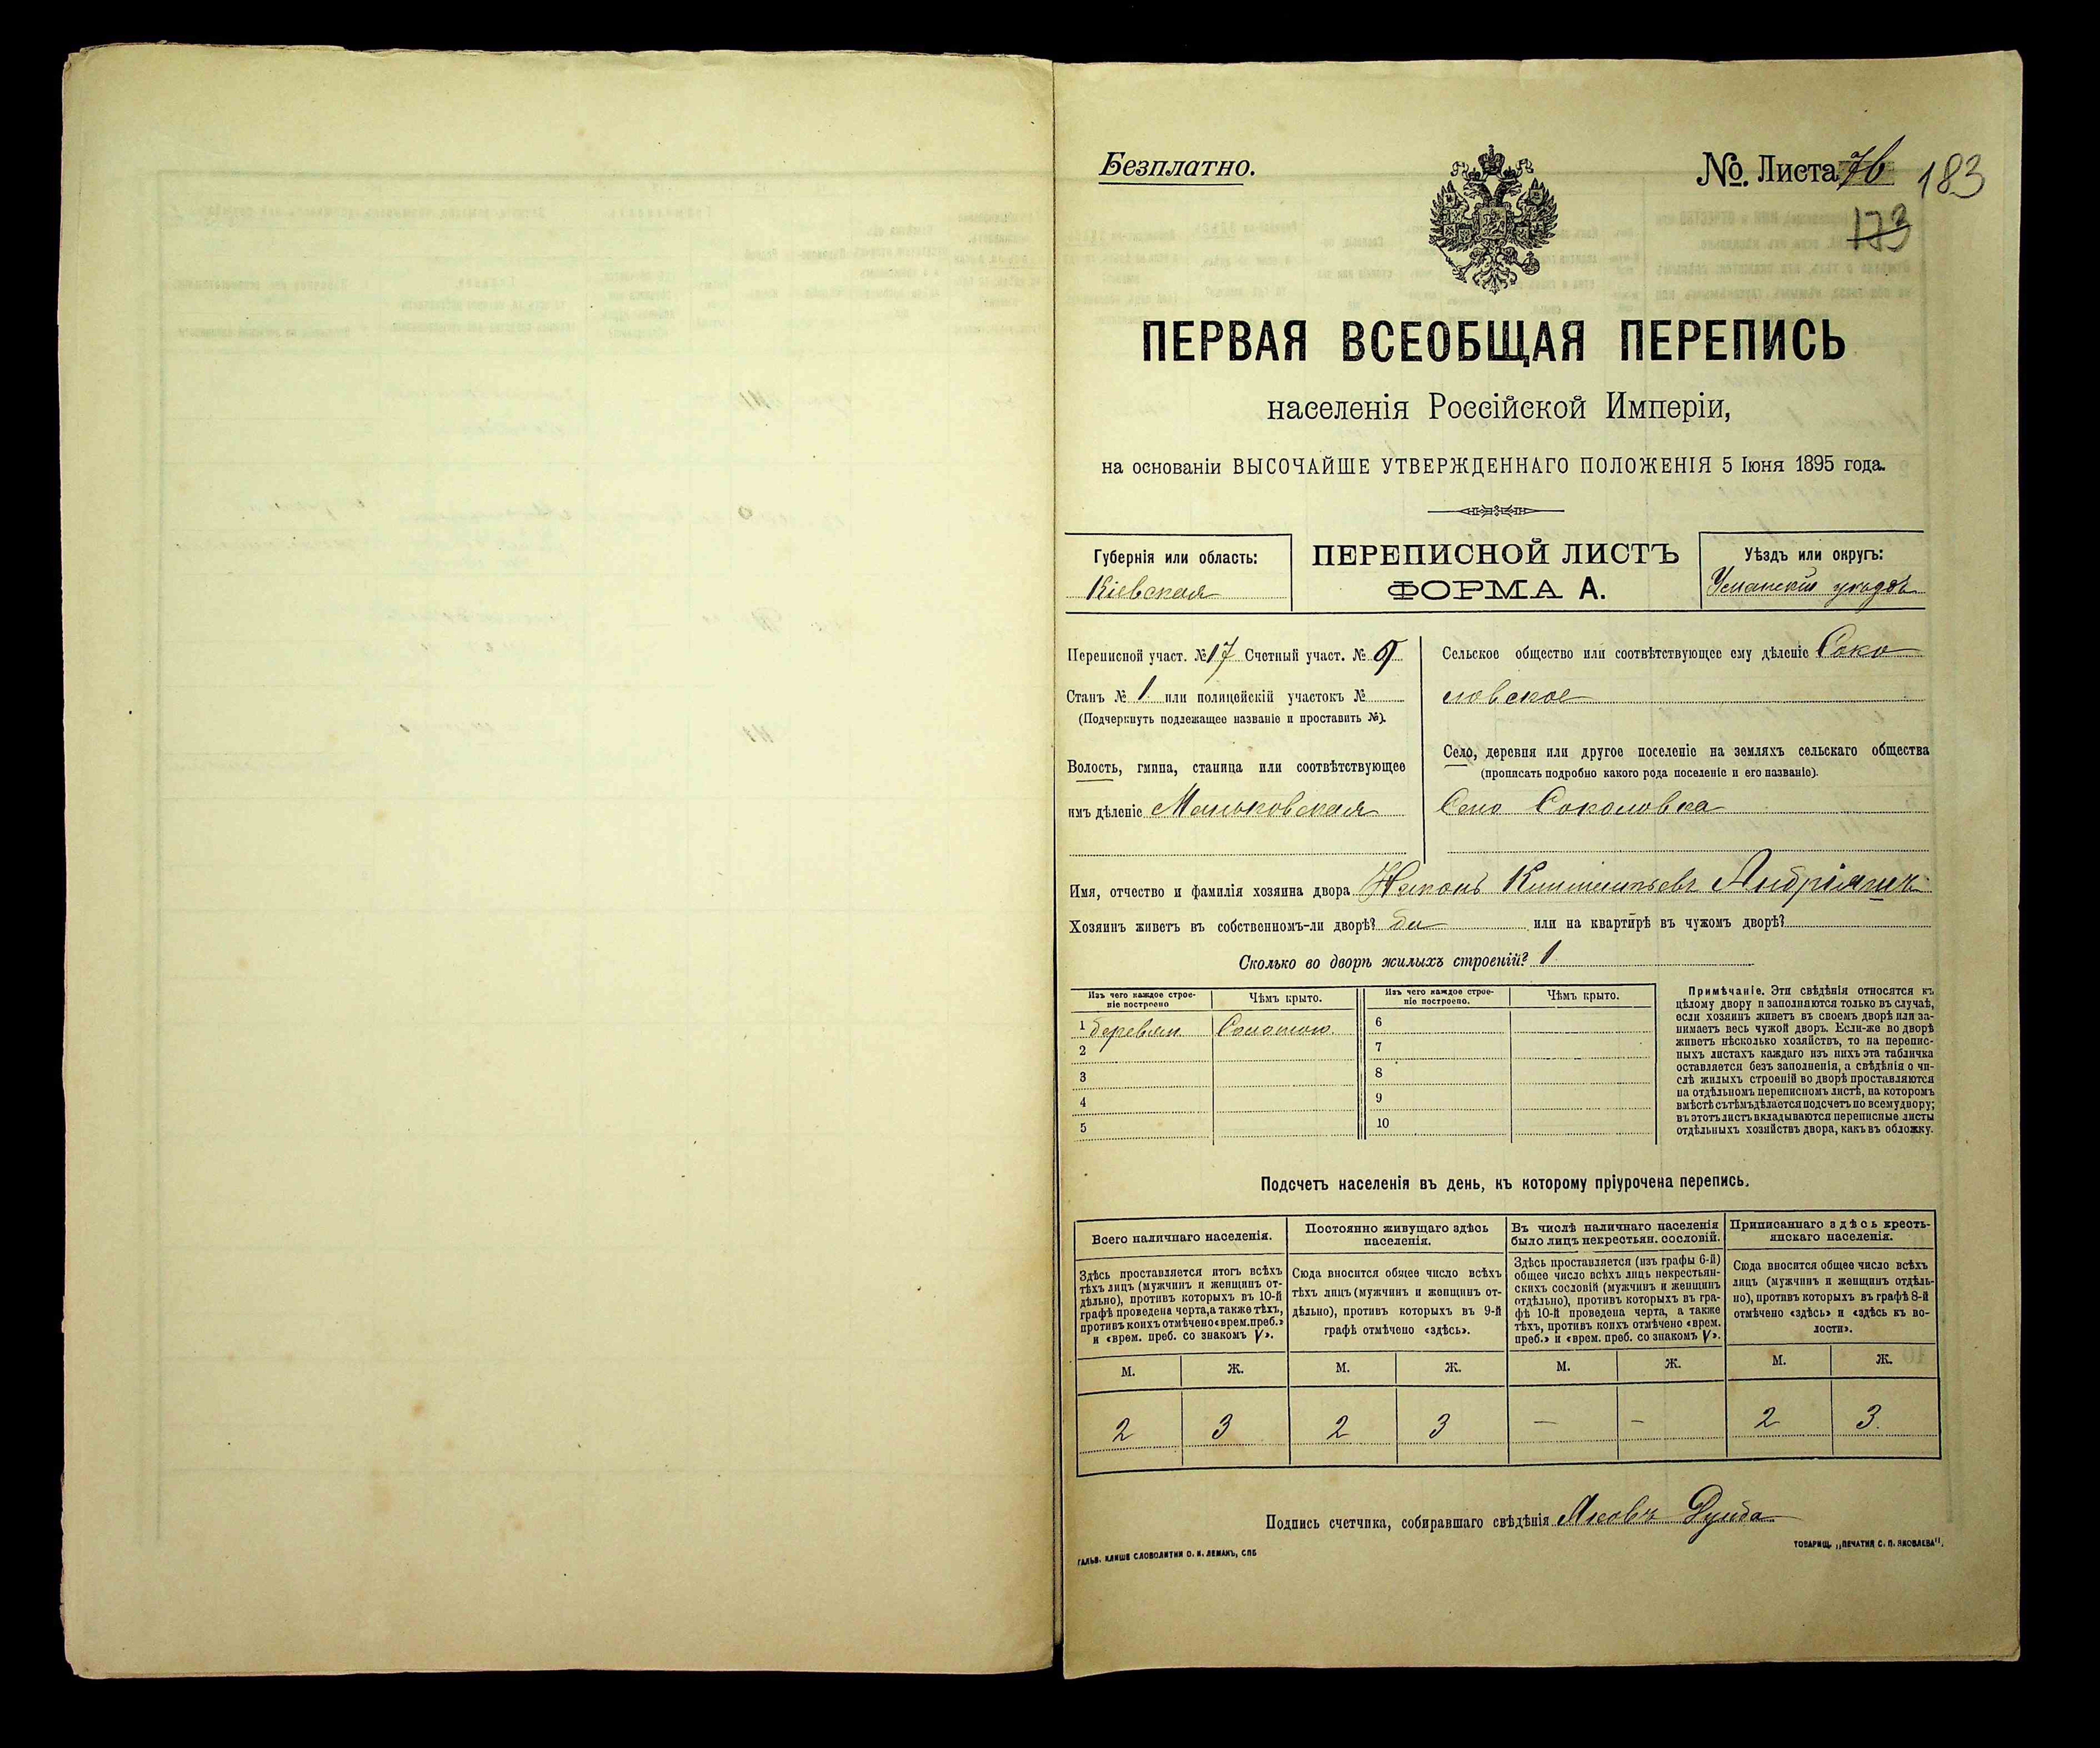 Безплатно.
№. Листа 76 183
173
ПЕРВАЯ ВСЕОБЩАЯ ПЕРЕПИСЬ
населенія Россійской Имперіи,
на основаніи ВЫСОЧАЙШЕ УТВЕРЖДЕННАГО ПОЛОЖЕНІЯ 5 Іюня 1895 года.
Губернія или область:
Кіевская
ПЕРЕПИСНОЙ ЛИСТЪ
ФОРМА А.
Уѣздъ или округъ:
Уманскій уѣздъ
Переписной участ. № 17 Счетный участ. №
Станъ № 1 или полицейскій участокъ №
(Подчеркнуть подлежащее названіе и проставить №).
Волость, гмина, станица или соотвѣтствующее
имъ дѣленіе Маньковская
Сельское общество или соотвѣтствующее ему дѣленіе Соко
ловское
Село, деревня или другое поселеніе на земляхъ сельскаго общества
(прописать подробно какого рода поселеніе и его названіе).
Село Соколовка
Имя, отчество и фамилія хозяина двора
Хозяинъ живетъ въ собственномъ-ли дворѣ? да или на квартирѣ въ чужомъ дворѣ?
Сколько во дворѣ жилыхъ строеній? 1
Изъ чего каждое строе-
ніе построено
Чѣмъ крыто.
Изъ чего каждое строе-
ніе построено.
Чѣмъ крыто.
1 деревян Соломою
2
3
4
5
6
7
8
9
10
Примѣчаніе. Эти свѣдѣнія относятся къ
цѣлому двору и заполняются только въ случаѣ,
если хозяинъ живетъ въ своемъ дворѣ или за-
нимаетъ весь чужой дворъ. Если-же во дворѣ
живетъ нѣсколько хозяйствъ, то на перепис-
ныхъ листахъ каждаго изъ нихъ эта табличка
оставляется безъ заполненія, а свѣдѣнія о чи-
слѣ жилыхъ строеній во дворѣ проставляются
на отдѣльномъ переписномъ листѣ, на которомъ
вмѣстѣ съ тѣмъ дѣлается подсчетъ по всему двору;
въ этотъ листъ вкладываются переписные листы
отдѣльныхъ хозяйствъ двора, какъ въ обложку.
Подсчетъ населенія въ день, къ которому пріурочена перепись.
Всего наличнаго населенія.
Здѣсь проставляется итогъ всѣхъ
тѣхъ лицъ (мужчинъ и женщинъ от-
дѣльно), противъ которыхъ въ 10-й
графѣ проведена черта, а также тѣхъ,
противъ коихъ отмѣчено «врем. преб.»
и «врем. преб. со знакомъ V».
Постоянно живущаго здѣсь
населенія.
Сюда вносится общее число всѣхъ
тѣхъ лицъ (мужчинъ и женщинъ от-
дѣльно), противъ которыхъ въ 9-й
графѣ отмѣчено «здѣсь».
Въ числѣ наличнаго населенія
было лицъ некрестьян. сословій.
Здѣсь проставляется (изъ графы 6-й)
общее число всѣхъ лицъ некрестьян-
скихъ сословій (мужчинъ и женщинъ
отдѣльно), противъ которыхъ въ гра-
фѣ 10-й проведена черта, а также
тѣхъ, противъ коихъ отмѣчено «врем.
преб.» и «врем. преб. со знакомъ V».
Приписаннаго здѣсь кресть-
янскаго населенія.
Сюда вносится общее число всѣхъ
лицъ (мужчинъ и женщинъ отдѣль-
но), противъ которыхъ въ графѣ 8-й
отмѣчено «здѣсь» и «здѣсь къ во-
лости».
М. Ж. М. Ж. М. Ж. М. Ж.
2 3 2 3 — — 2 3
Подпись счетчика, собиравшаго свѣдѣнія Яковъ
ГАЛЬВ. КЛИШЕ СЛОВОЛИТНИ О. И. ЛЕМАНЪ, СПБ
ТОВАРИЩ. „ПЕЧАТНЯ С. П. ЯКОВЛЕВА".